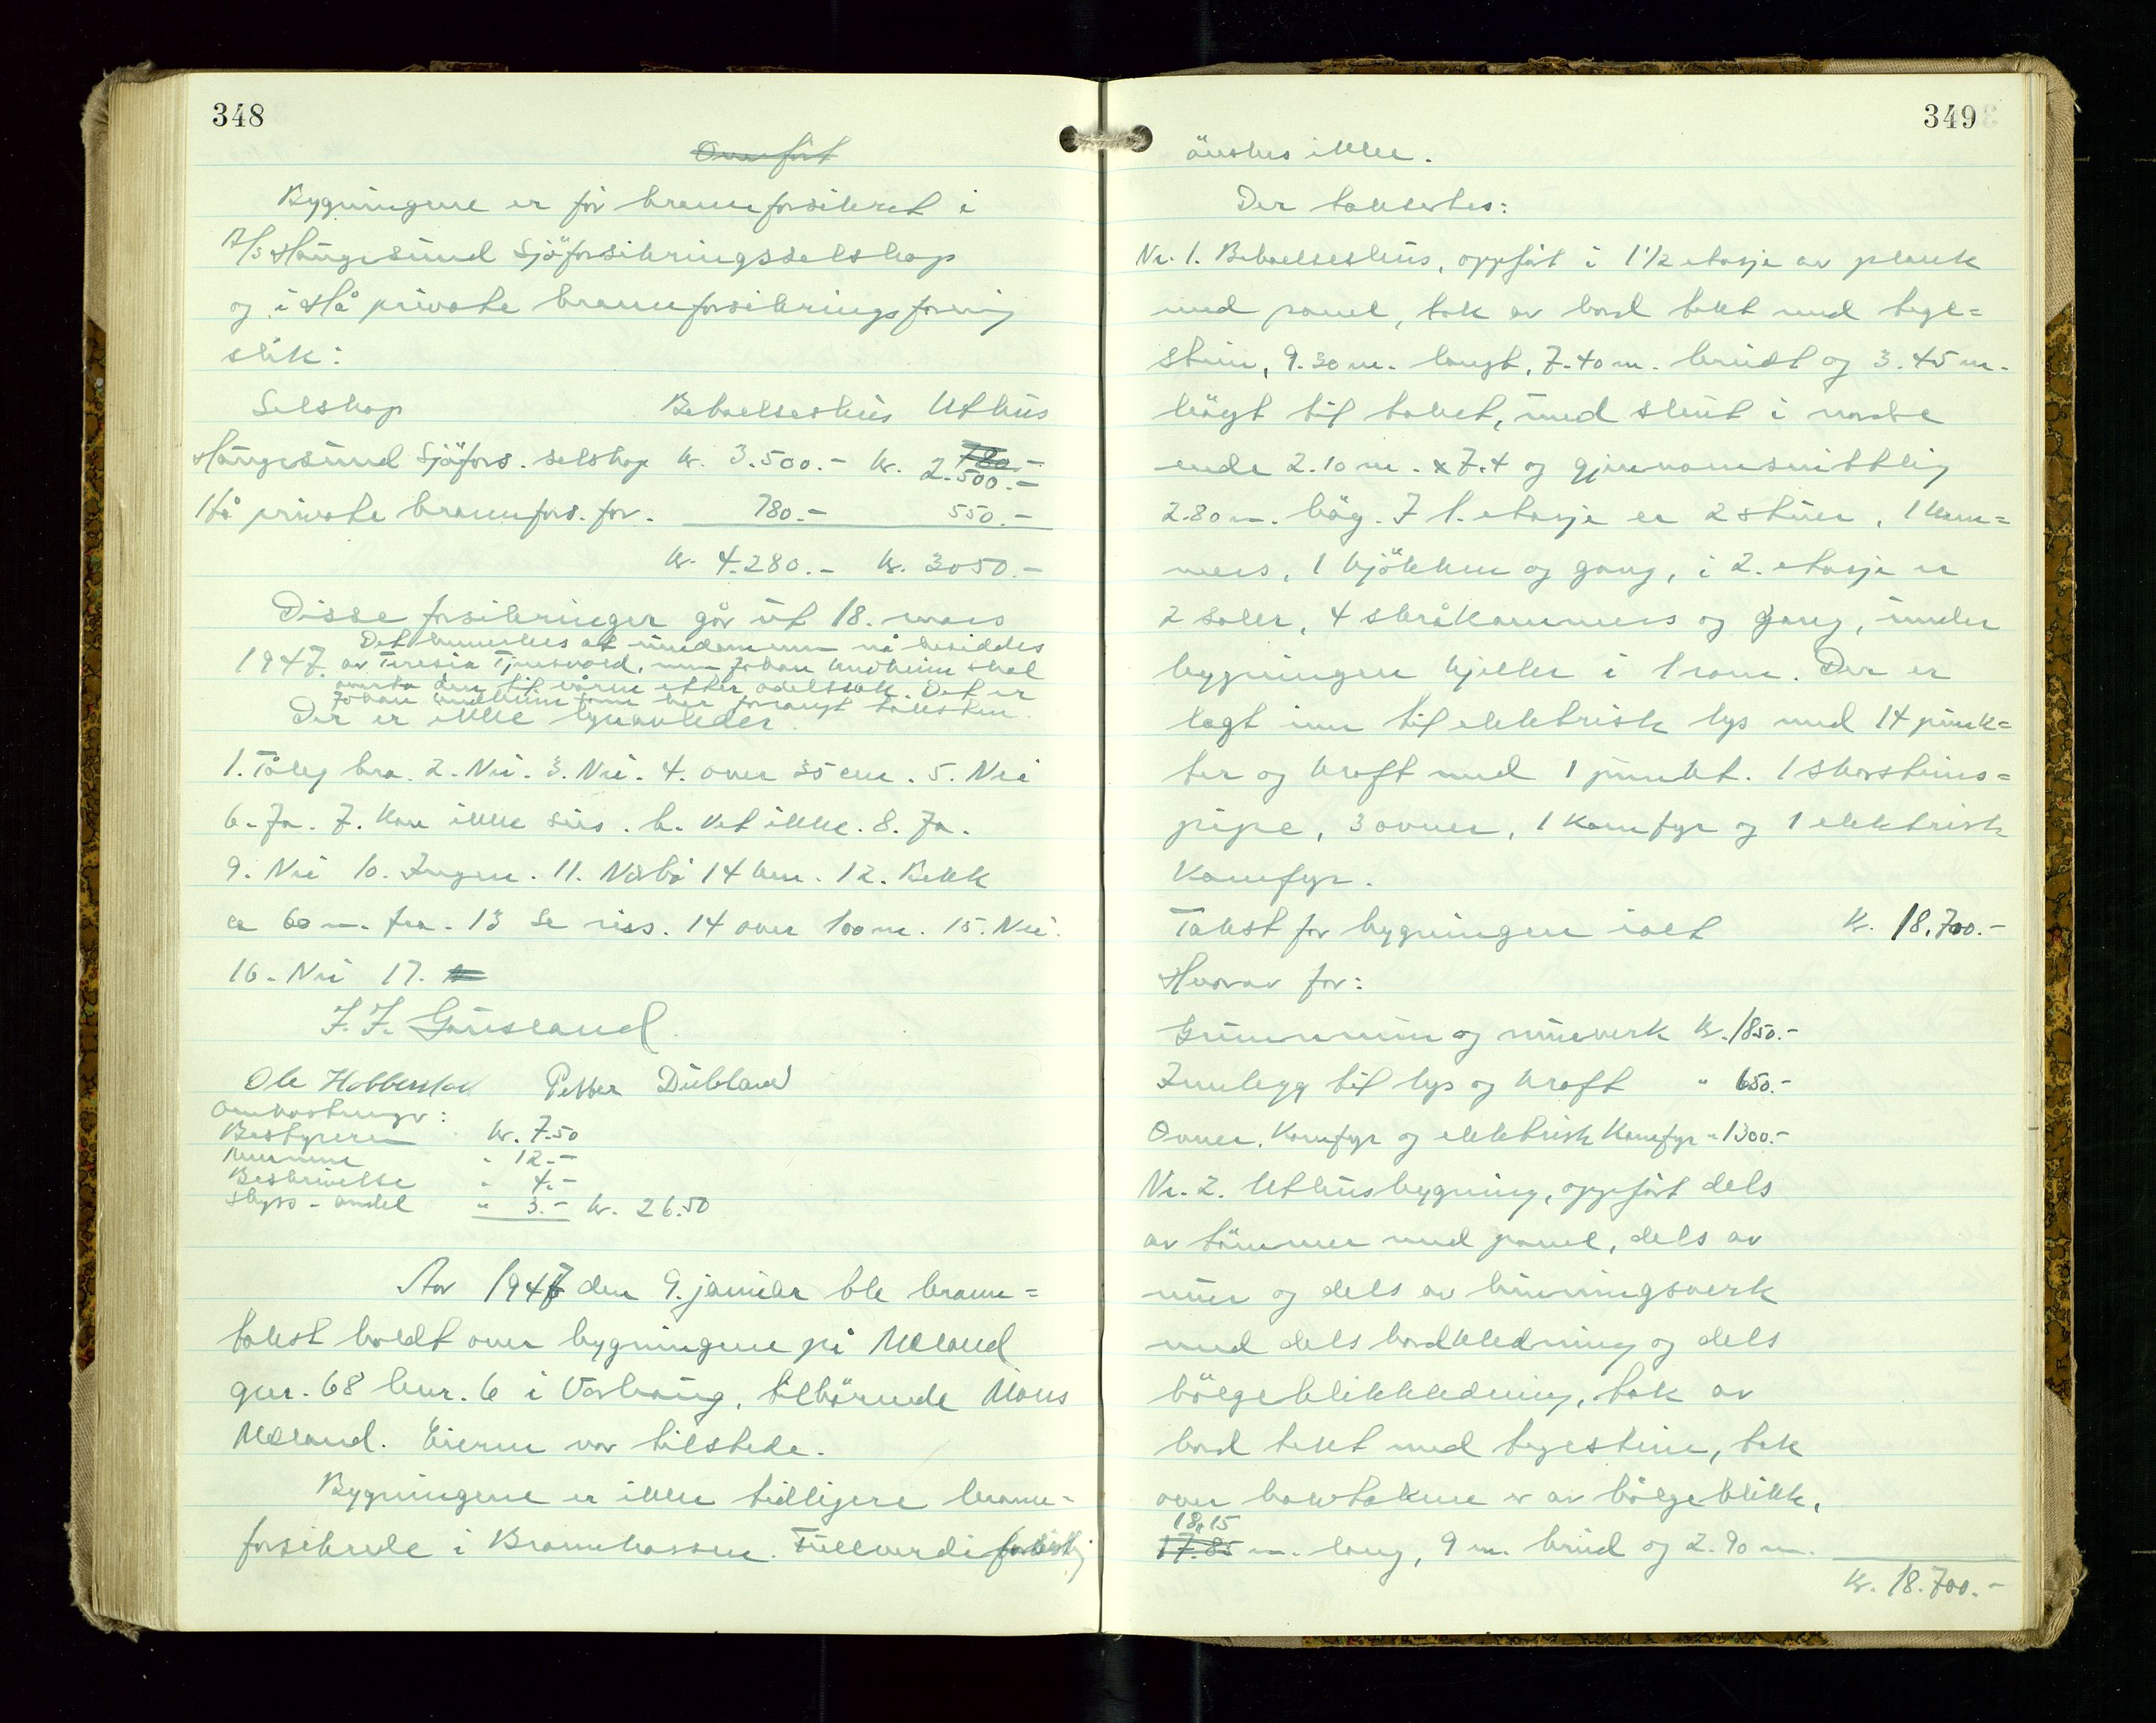 348
Overført
Bygningene er før brannforsikret i
A/s Haugesund Sjøforsikringsselskap
og i Hå private brannforsikringsforening
slik:
Selskap Beboelseshus Uthus
Haugesund Sjøfors. selskap kr. 3.500.- kr. 2.500.-
Hå private brannfors. for. 780.- 550.-
kr. 4.280.- kr. 3050.-
Disse forsikringer går ut 18. mars
Det bemerkes at eiendommen nå besiddes
1947. av Teresia Tjensvold, men Johan Undheim skal
overta den til våren etter odelssak. Det er
Johan Undheim som har forlangt taksten.
Der er ikke lynavleder.
1. Tålig bra. 2. Nei. 3. Nei. 4. over 35 cm. 5. Nei
6. Ja. 7. Kan ikke sies. b. Vet ikke. 8. Ja.
9. Nei 10. Ingen. 11. Nærbø 14 km. 12. Bekk
ca 60 m. fra. 13 Se riss. 14 over 100 m. 15. Nei.
16. Nei 17.
J. J. Gausland.
Ole Hobberstad Petter Dubland
Omkostninger:
Bestyreren kr. 7.50
Mennene " 12.-
Beskrivelse " 4.-
Skyss-andel " 3.- kr. 26.50
År 1947 den 9. januar ble brann=
takst holdt over bygningene på Mæland
gnr. 68 bnr. 6 i Varhaug, tilhørende Mons
Mæland. Eieren var tilstede.
Bygningene er ikke tidligere brann=
forsikrede i Brannkassen. Fullverdiforsikring
349
önskes ikke.
Der taksertes:
Nr. 1. Beboelseshus, oppført i 1 1/2 etasje av plank
med panel, tak av bord tekt med tegl=
stein, 9.30 m. langt, 7.40 m. breidt og 3.45 m.
høgt til taket, med skut i nordre
ende 2.10 m. x 7.4 og gjennomsnittlig
2.80 m. høg. I 1. etasje er 2 stuer, 1 kam=
mers, 1 kjøkken og gang, i 2. etasje er
2 saler, 4 skråkammers og gang, under
bygningen kjeller i 1 rom. Der er
lagt inn til elektrisk lys med 14 punk=
ter og kraft med 1 punkt. 1 skorsteins=
pipe, 3 ovner, 1 komfyr og 1 elektrisk
komfyr.
Takst for bygningen ialt kr. 18.700.-
Hvorav for:
Grunnmur og murverk kr. 1850.-
Innlegg til lys og kraft " 650.-
Ovner, komfyr og elektrisk komfyr " 1300.-
Nr. 2. Uthusbygning, oppført dels
av tømmer med panel, dels av
mur og dels av binningsverk
med dels bordkledning og dels
bølgeblikkledning, tak av
bord tekt med teglstein, tak
over halvtakene er av bølgeblikk,
18,15
17.85 m. lang, 9 m. breid og 2.90 m.
kr. 18.700.-